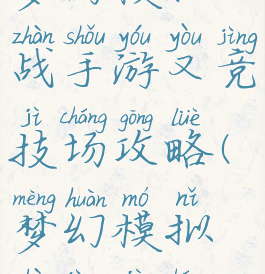 zhàn shǒu yóu yòu jìng
战手游又竞
jì chǎng gōng lüè
技场攻略(
mèng huàn mó nǐ
梦幻模拟